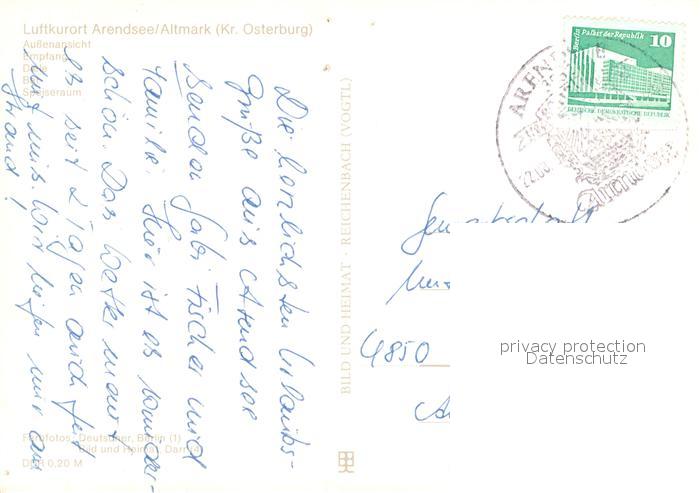 Luftkurort Arendsee/Altmark (Kr. Osterburg)
Außenansicht
Empfang
Speiseraum
Die herzlichsten Urlaubs-
grüße aus Arendsee
senden Gabi Fischer und
Familie. Hier ist es wunder-
schön. Das Wetter macht
es seit 2 Tagen auch fest
mit uns. Wir liegen nur am
Strand!
Farbfotos: Deutscher, Berlin (1)
Bild und Heimat, Darr (4)
DDR 0,20 M
BILD UND HEIMAT · REICHENBACH (VOGTL)
Berlin Palast der Republik
10
DEUTSCHE DEMOKRATISCHE REPUBLIK
ARENDSEE
4850
privacy protection
Datenschutz